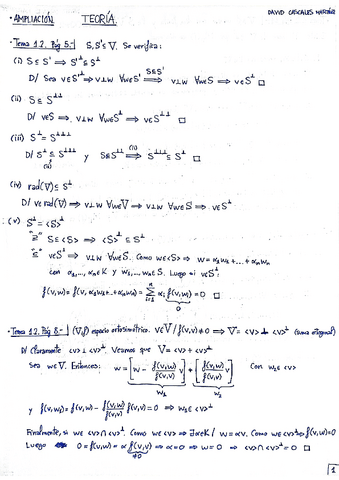 DAVID CASCALES MARTÍNEZ
· AMPLIACIÓN TEORÍA
· Tema 1.2. Pág 5.- | S, S' ⊆ V. Se verifica:
(i) S ⊆ S' ⇒ S'^⊥ ⊆ S^⊥
D/ Sea v∈S'^⊥ ⇒ v⊥w ∀w∈S' S⊆S' ⇒ v⊥w ∀w∈S ⇒ v∈S^⊥ □
(ii) S ⊆ S^⊥⊥
D/ v∈S ⇒ v⊥w ∀w∈S^⊥ ⇒ v∈S^⊥⊥ □
(iii) S^⊥ = S^⊥⊥⊥
D/ S^⊥ ⊆ S^⊥⊥⊥ y S⊆S^⊥⊥ (i) ⇒ S^⊥⊥⊥ ⊆ S^⊥ □
(ii)
(iv) rad(V) ⊆ S^⊥
D/ v∈rad(V) ⇒ v⊥w ∀w∈V ⇒ v⊥w ∀w∈S ⇒ v∈S^⊥
(v) S^⊥ = <S>^⊥
"⊇" S⊆<S> ⇒ <S>^⊥ ⊆ S^⊥
"⊆" v∈S^⊥ ⇒ v⊥w ∀w∈S. Como w∈<S> ⇒ w = α₁w₁+...+αₙwₙ
con α₁,...,αₙ∈K y w₁,...,wₙ∈S. Luego si v∈S^⊥:
f(v,w) = f(v, α₁w₁+...+αₙwₙ) = Σ αᵢ f(v,wᵢ) = 0 □
0
· Tema 1.2. Pág 8.- | (V,f) espacio ortosimétrico. v∈V / f(v,v)≠0 ⇒ V = <v> ⊥ <v>^⊥ (suma ortogonal)
D/ Claramente <v> ⊥ <v>^⊥. Veamos que V = <v> + <v>^⊥
Sea w∈V. Entonces: w = [w - f(v,w)/f(v,v) v] + [f(v,w)/f(v,v) v] Con w₂∈<v>
w₁ w₂
y f(v,w₁) = f(v,w) - f(v,w)/f(v,v) f(v,v) = 0 ⇒ w₁∈<v>^⊥
Finalmente, si w∈<v>∩<v>^⊥. Como w∈<v> ⇒ ∃α∈K / w = αv. Como w∈<v>^⊥ ⇒ f(v,w)=0
Luego 0 = f(v,w) = α f(v,v) ⇒ α = 0 ⇒ w = 0 ⇒ <v>∩<v>^⊥ = 0 □
≠0
1